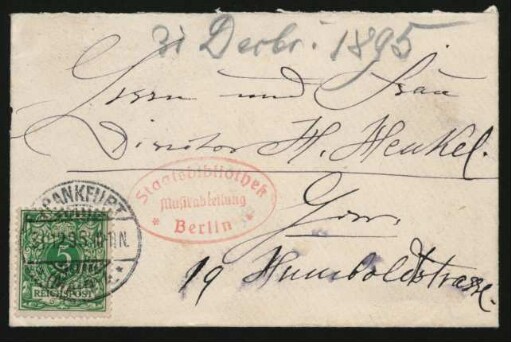 31 Decbr. 1895
Herrn und Frau
Director H. Henkel.
Staatsbibliothek
Musikabteilung
* Berlin *
19 Humboldtstrasse.
FRANKFURT
31.12.95.
5
REICHSPOST